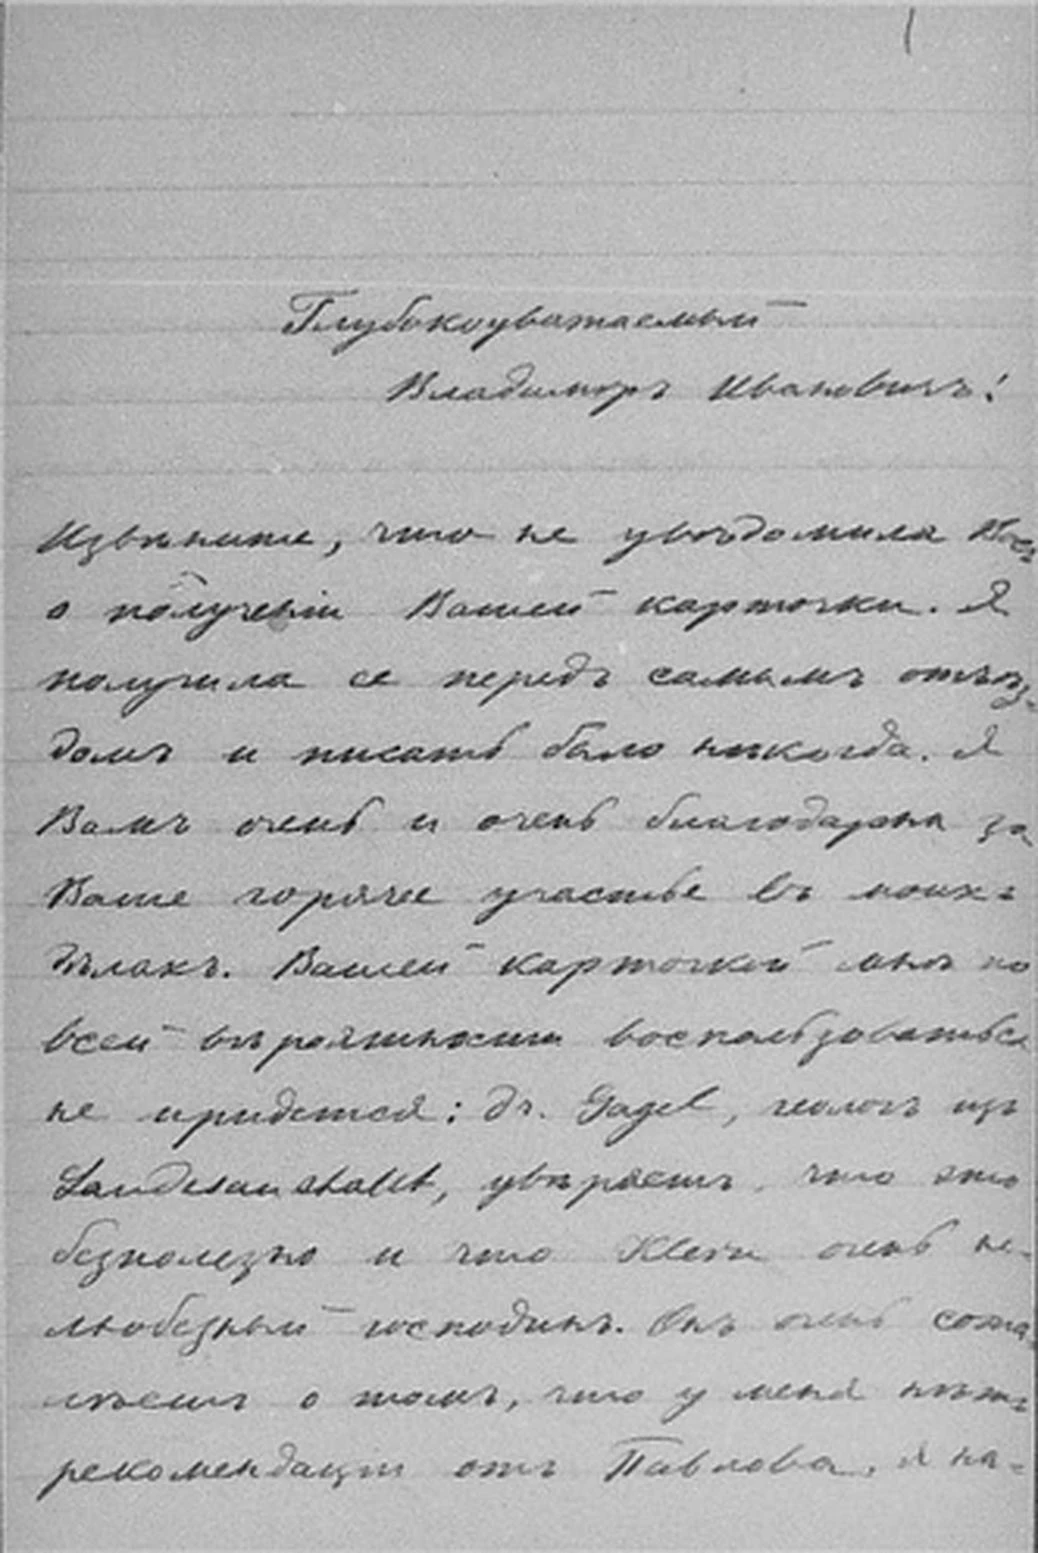 Глубокоуважаемый
Владимиръ Ивановичъ!
Извините, что не увѣдомила Васъ
о полученіи Вашей карточки. Я
получила ее передъ самымъ отъѣз-
домъ и писать было некогда. Я
Вамъ очень и очень благодарна за
Ваше горячее участье въ моихъ
дѣлахъ. Вашей карточкой мнѣ по
всей вѣроятности воспользоваться
не придется: Dr. Gagel, геологъ изъ
Landesanstalt, увѣряетъ, что это
безполезно и что Klein очень не-
любезный господинъ. Онъ очень сожа-
лѣетъ о томъ, что у меня нѣтъ
рекомендаціи отъ Павлова. Я на-